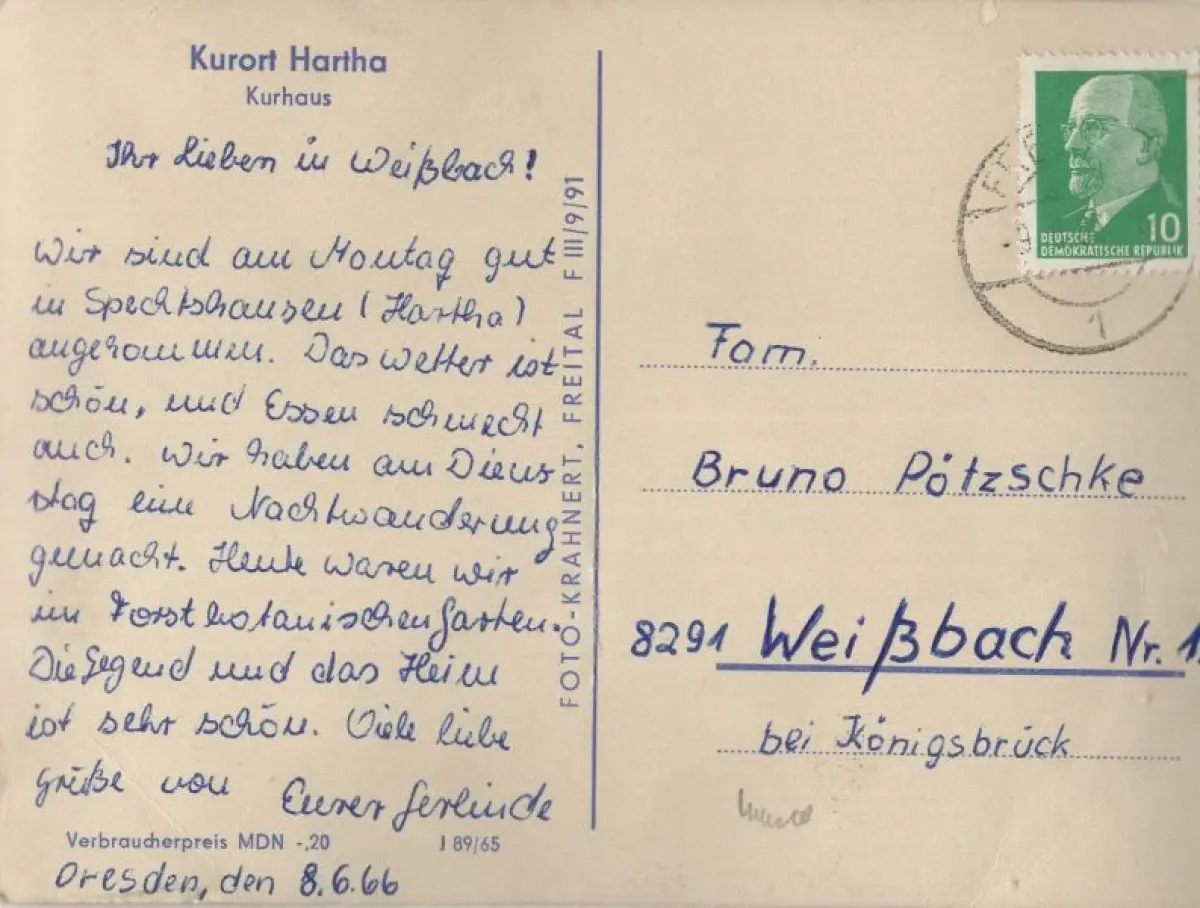 Kurort Hartha
Kurhaus
Ihr Lieben in Weißbach!
Wir sind am Montag gut
in Spechtshausen (Hartha)
angekommen. Das Wetter ist
schön, und Essen schmeckt
auch. Wir haben am Diens
stag eine Nachtwanderung
gemacht. Heute waren wir
im Forstbotanischen Garten.
Die Gegend und das Heim
ist sehr schön. Viele liebe
Grüße von Eurer Gerlinde
Verbraucherpreis MDN -,20 J 89/65
Dresden, den 8.6.66
FOTO-KRAHNERT, FREITAL F III/9/91
10
DEUTSCHE
DEMOKRATISCHE REPUBLIK
1
Fam.
Bruno Pötzschke
8291 Weißbach Nr. 1
bei Königsbrück